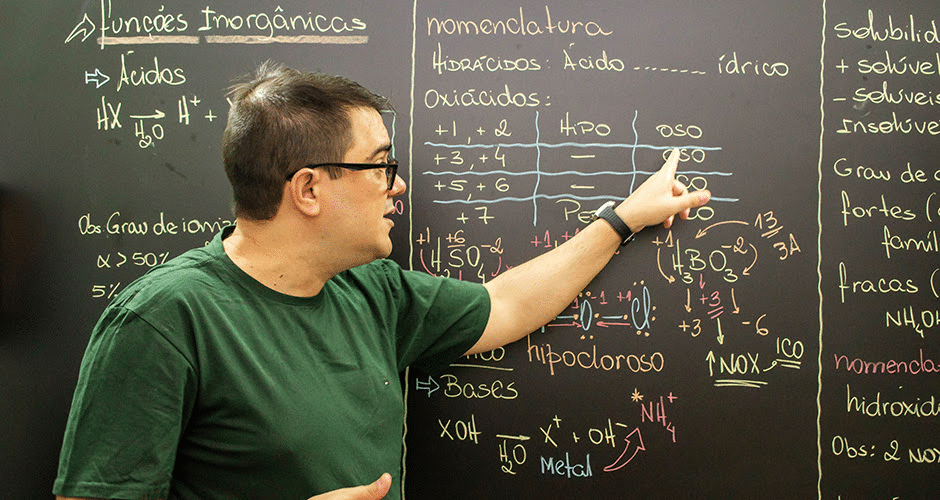 funções Inorgânicas
⇨ Ácidos
HX →H₂O H⁺ +
Obs: Grau de ioniz
α > 50%
5%
nomenclatura
HIDRÁCIDOS: Ácido ....... ídrico
Oxiácidos:
+1, +2 HIPO OSO
+3, +4 — OSO
+5, +6 —
+7
+1 +6 -2
H₂SO₄
+1 -2
H₃BO₃
13
3A
+3
+3 -6
-1 +1
Cl
↑NOX → ICO
hipocloroso
⇨ Bases
XOH →H₂O X⁺ + OH⁻
Metal
* NH₄⁺
Solubilid
+ solúvel
- solúveis
Insolúve
Grau de
fortes (
famíl
fracas (
NH₄OH
nomencla
hidróxid
Obs: 2 NOX